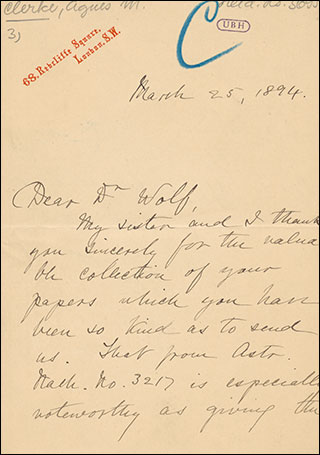 Clerke, Agnes M.
3)
UBH
C
68, Redcliffe Square,
London, S.W.
March 25, 1894.
Dear Dr Wolf,
My sister and I thank
you sincerely for the valua
ble collection of your
papers which you have
been so kind as to send
us. That from Astr.
Nach. No. 3217 is especially
noteworthy as giving the